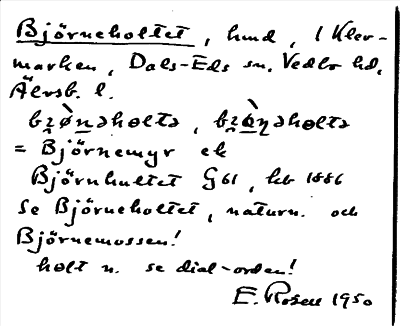 Björneholtet, hmd, i Kler-
marken, Dals-Eds sn. Vedbo hd,
Älvsb. l.
bɀø̀nəholtə, bɀø̀nəholtə
= Björnemyr ek
Björnhultet G61, kb 1886
Se Björneholtet, naturn. och
Björnemossen!
holt n. se dial-orden!
E. Rosell 1950